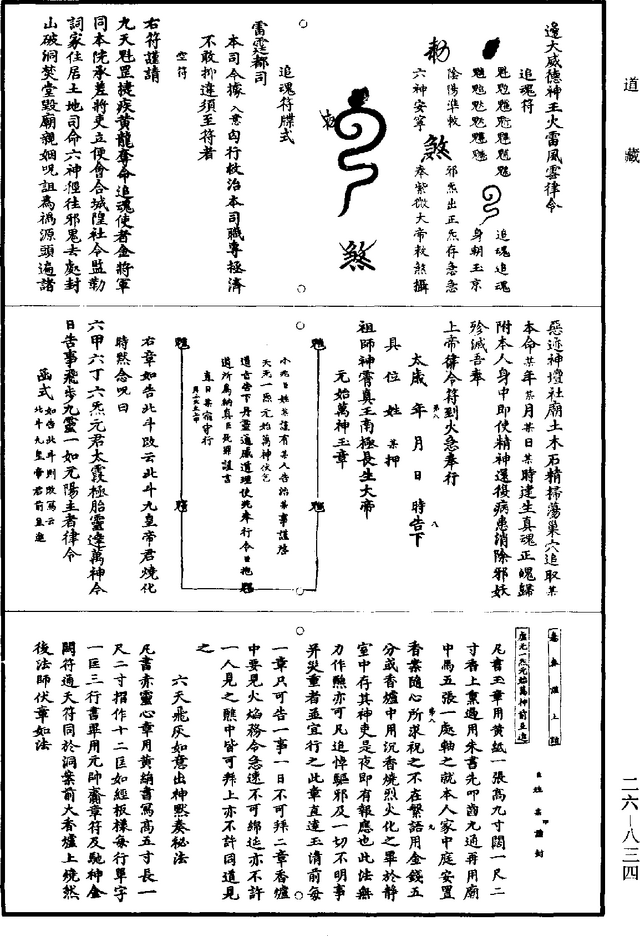 道藏
邊大威德神王火雷風雲律令
追魂符
追魂追魂
身朝玉京
陰陽準敕
邪炁出正炁存急急
六神安寧
奉紫微大帝敕煞攝
敕
煞
煞
追魂符牒式
雷霆都司
本司今據入意囟行救治本司職專拯濟
不敢抑違須至符者
空符
右符謹請
九天魁罡捷疾黃龍奪命追魂使者金將軍
同本院承差將吏立便會合城隍社令監勒
詞家住居土地司命六神徑往邪鬼去處封
山破洞焚堂毀廟親姻呪詛為禍源頭遍諸
惡迹神壇社廟土木石精掃蕩巢穴追取某
本命某年某月某日某時建生真魂正魄歸
附本人身中即使精神還復病患消除邪妖
殄滅吾奉
上帝律令符到火急奉行
太歲年月日時告下
具位姓某押
祖師神霄真王南極長生大帝
元始萬神玉章
右章如告北斗改云北斗九皇帝君燒化
時默念呪曰
六甲六丁六炁元君太霞極胎靈達萬神今
日告事飛步九靈一如元陽主者律令
函式如告北斗則改寫云
北斗九皇帝君前上進
凡書玉章用黃紙一張高九寸闊一尺二
寸香上熏過用朱書先叩齒九通再用廟
中馬五張一處軸之就本人家中庭安置
香案隨心所求祝之不在繁語用金錢五
分或香爐中用沉香燒烈火化之畢於靜
室中存其神吏是夜即有報應也此法無
力作醮亦可凡追悼驅邪及一切不明事
昇災重者並宜行之此章直達玉清前每
一章只可告一事一日不可拜二章香爐
中要見火焰務令急速不可綿延亦不許
一人見之醮中皆可拜上亦不許同道見
之
六天飛灰如意出神默奏秘法
凡書赤靈心章用黃絹書寫高五寸長一
尺二寸摺作十二匡如經板樣每行單字
一匡三行書畢用元帥齋章符及馳神金
闕符通天符同於洞案前大香爐上燒然
後法師伏章如法
二六—八三四